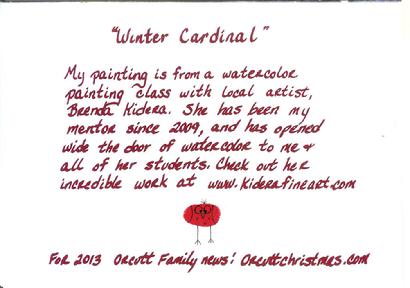 "Winter Cardinal"
My painting is from a watercolor
painting class with local artist,
Brenda Kidera. She has been my
mentor since 2009, and has opened
wide the door of watercolor to me &
all of her students. Check out her
incredible work at www.Kiderafineart.com
For 2013 Orcutt Family news: Orcuttchristmas.com